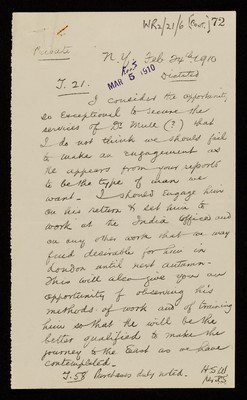 WR2/21/6 [Prov.] 72
Private
N.Y. Feb 24th 1910
Recd
MAR 5 1910
Dictated
T. 21.
I consider the opportunity
so exceptional to secure the
services of Dr Mull (?) that
I do not think we should fail
to make an engagement as
he appears from your reports
to be the type of man we
want. I should engage him
on his return & set him to
work at the India Office and
on any other work that we may
find desirable for him in
London until next autumn.
This will also give you an
opportunity of observing his
methods of work and of training
him so that he will be the
better qualified to make the
journey to the East as we have
contemplated.
T. 58 Purchases duly noted. H.S.W